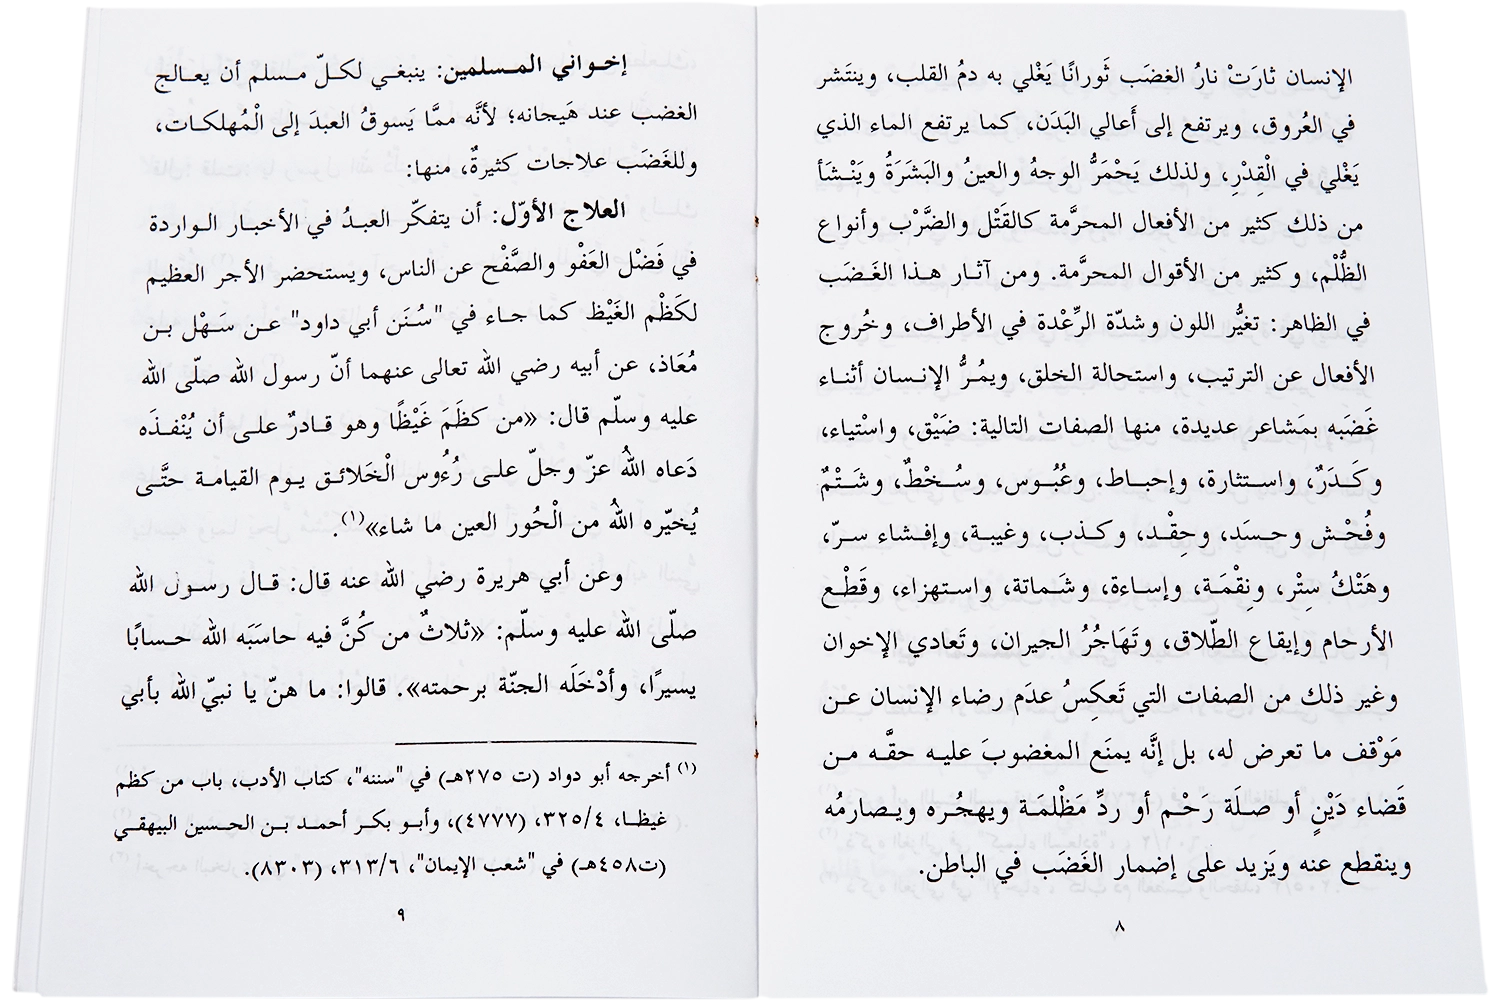 الإنسان ثارَتْ نارُ الغضَب ثَورانًا يَغْلي به دمُ القلب، وينتَشر
في العُروق، ويرتفع إلى أَعالي البَدَن، كما يرتفع الماء الذي
يَغْلي في الْقِدْرِ، ولذلك يَحْمَرُّ الوجهُ والعينُ والبَشَرَةُ ويَنْشَأ
من ذلك كثير من الأفعال المحرَّمة كالقَتْل والضَّرْب وأنواع
الظُّلْم، وكثير من الأقوال المحرَّمة. ومن آثار هذا الغَضَب
في الظاهر: تغيُّر اللون وشدّة الرِّعْدة في الأطراف، وخُروج
الأفعال عن الترتيب، واستحالة الخلق، ويمُرُّ الإنسان أثناء
غَضَبه بمَشاعر عديدة، منها الصفات التالية: ضَيْق، واسْتياء،
وكَدَرٌ، واستثارة، وإحباط، وعُبُوس، وسُخْطٌ، وشَتْمٌ
وفُحْش وحسَد، وحِقْد، وكذب، وغيبة، وإفشاء سرّ،
وهَتْكُ سِتْر، ونِقْمَة، وإساءة، وشَماتة، واستهزاء، وقَطْع
الأرحام وإيقاع الطّلاق، وتَهَاجُرُ الجيران، وتَعادي الإخوان
وغير ذلك من الصفات التي تَعكِسُ عدَم رضاء الإنسان عن
مَوْقف ما تعرض له، بل إنَّه يمنَع المغضوبَ عليه حقَّه من
قَضاء دَيْنٍ أو صلَة رَحْم أو ردِّ مَظْلمَة ويهجُره ويصارمُه
وينقطع عنه ويَزيد على إضمار الغَضَب في الباطن.
٨
إخواني المسلمين: ينبغي لكلّ مسلم أن يعالج
الغضب عند هَيجانه؛ لأنَّه ممَّا يَسوقُ العبدَ إلى الْمُهلكات،
وللغَضَب علاجات كثيرةٌ، منها:
العلاج الأوّل: أن يتفكّر العبدُ في الأخبار الواردة
في فَضْل العَفْو والصَّفْح عن الناس، ويستحضر الأجر العظيم
لكَظْم الغَيْظ كما جاء في "سُنَن أبي داود" عن سَهْل بن
مُعَاذ، عن أبيه رضي الله تعالى عنهما أنّ رسول الله صلّى الله
عليه وسلّم قال: «من كظَمَ غَيْظًا وهو قادرٌ على أن يُنْفذَه
دَعاه اللهُ عزّ وجلّ على رُءُوس الْخَلائق يوم القيامة حتَّى
يُخيّره اللهُ من الْحُور العين ما شاء»(١).
وعن أبي هريرة رضي الله عنه قال: قال رسول الله
صلّى الله عليه وسلّم: «ثلاثٌ من كُنَّ فيه حاسَبَه الله حسابًا
يسيرًا، وأدْخَلَه الجنّة برحمته». قالوا: ما هنّ يا نبيّ الله بأبي
(١) أخرجه أبو دواد (ت ٢٧٥هـ) في "سننه"، كتاب الأدب، باب من كظم
غيظا، ٣٢٥/٤، (٤٧٧٧)، وأبو بكر أحمد بن الحسين البيهقي
(ت٤٥٨هـ) في "شعب الإيمان"، ٣١٣/٦، (٨٣٠٣).
٩